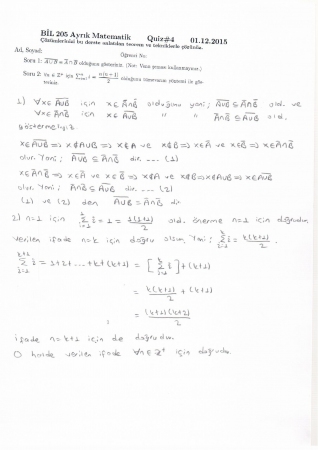 BİL 205 Ayrık Matematik Quiz#4 01.12.2015
Çözümlerinizi bu derste anlatılan teorem ve tekniklerle çözünüz.
Ad, Soyad: Öğrenci No:
Soru 1: A∪B = A̅∩B̅ olduğunu gösteriniz. (Not: Venn şeması kullanmayınız.)
Soru 2: ∀n ∈ Z⁺ için ∑ⁿᵢ₌₁ i = n(n+1)/2 olduğunu tümevarım yöntemi ile gösteriniz.
1) ∀x∈A̅∪̅B̅ için x∈A̅∩B̅ olduğunu yani; A̅∪̅B̅ ⊆ A̅∩B̅ old. ve
∀x∈A̅∩B̅ için x∈A̅∪̅B̅ " " A̅∩B̅ ⊆ A̅∪̅B̅ old.
göstermeliyiz.
x∈A̅∪̅B̅ ⇒ x∉A∪B ⇒ x∉A ve x∉B ⇒ x∈A̅ ve x∈B̅ ⇒ x∈A̅∩B̅
olur. Yani; A̅∪̅B̅ ⊆ A̅∩B̅ dir. --- (1)
x∈A̅∩B̅ ⇒ x∈A̅ ve x∈B̅ ⇒ x∉A ve x∉B ⇒ x∉A∪B ⇒ x∈A̅∪̅B̅
olur. Yani; A̅∩B̅ ⊆ A̅∪̅B̅ dir. --- (2)
(1) ve (2) den A̅∪̅B̅ = A̅∩B̅ dir.
2) n=1 için ∑¹ᵢ₌₁ i = 1 = 1(1+1)/2 old. önerme n=1 için doğrudur.
verilen ifade n=k için doğru olsun. Yani; ∑ᵏᵢ₌₁ i = k(k+1)/2.
∑ᵏ⁺¹ᵢ₌₁ i = 1+2+...+k+(k+1) = [∑ᵏᵢ₌₁ i] + (k+1)
= k(k+1)/2 + (k+1)
= (k+1)(k+2)/2
ifade n=k+1 için de doğrudur.
O halde verilen ifade ∀n∈Z⁺ için doğrudur.